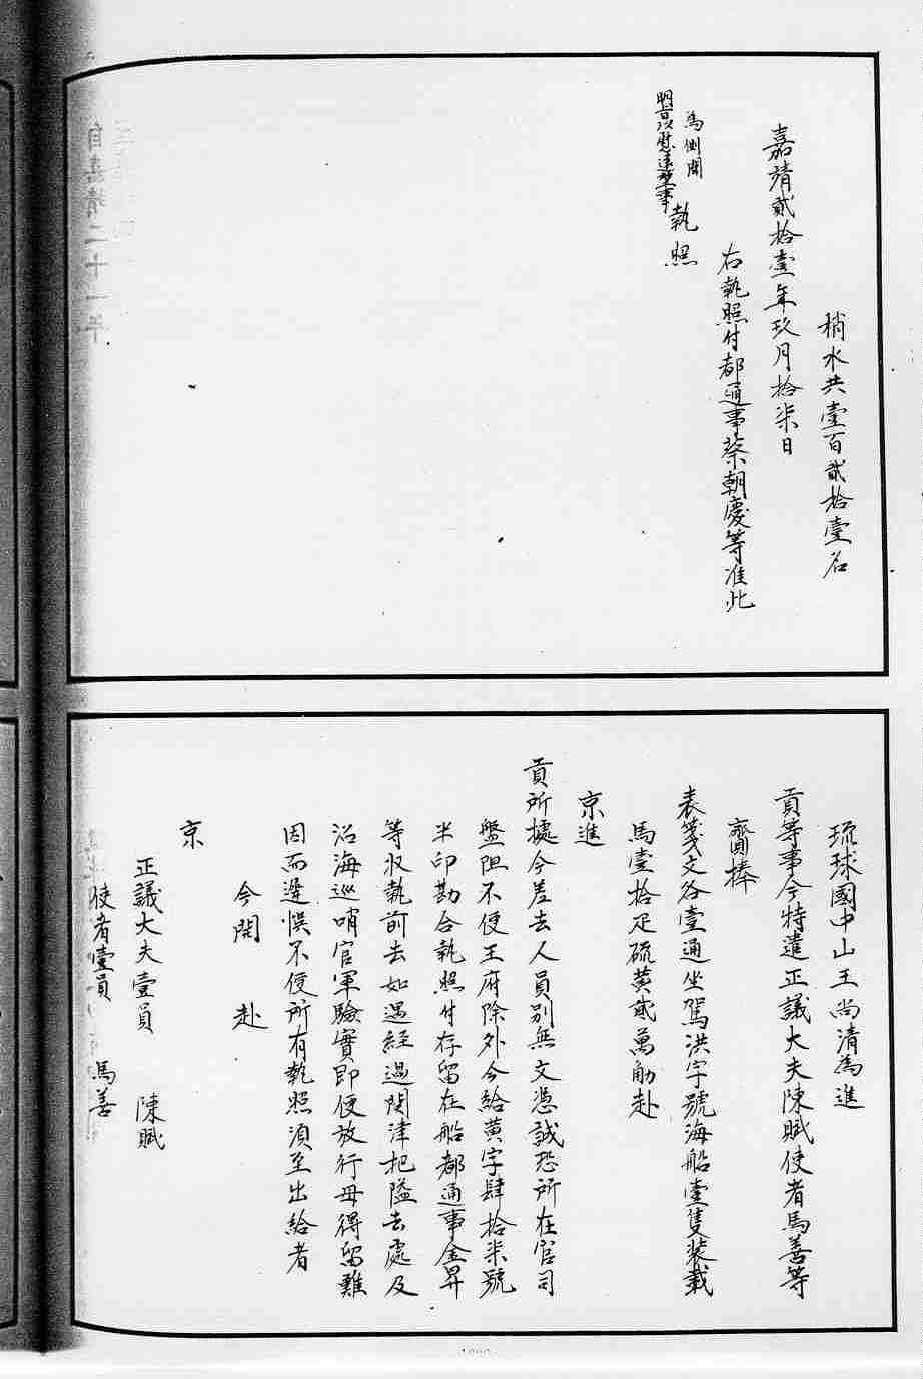 梢水共壹百貳拾壹名
嘉靖貳拾壹年玖月拾柒日
右執照付都通事蔡朝慶等准此
為開
明以慰遠事
執照
琉球國中山王尚清為進
貢等事今特遣正議大夫陳賦使者馬善等
齎捧
表箋文各壹通坐駕洪字號海船壹隻裝載
馬壹拾疋硫黃貳萬觔赴
京進
貢所據今差去人員別無文憑誠恐所在官司
盤阻不便王府除外今給黃字肆拾柒號
半印勘合執照付存留在船都通事金昇
等收執前去如遇經過關津把隘去處及
沿海巡哨官軍驗實即便放行毋得留難
因而遲悞不便所有執照須至出給者
今開赴
京
正議大夫壹員 陳賦
使者壹員 馬善